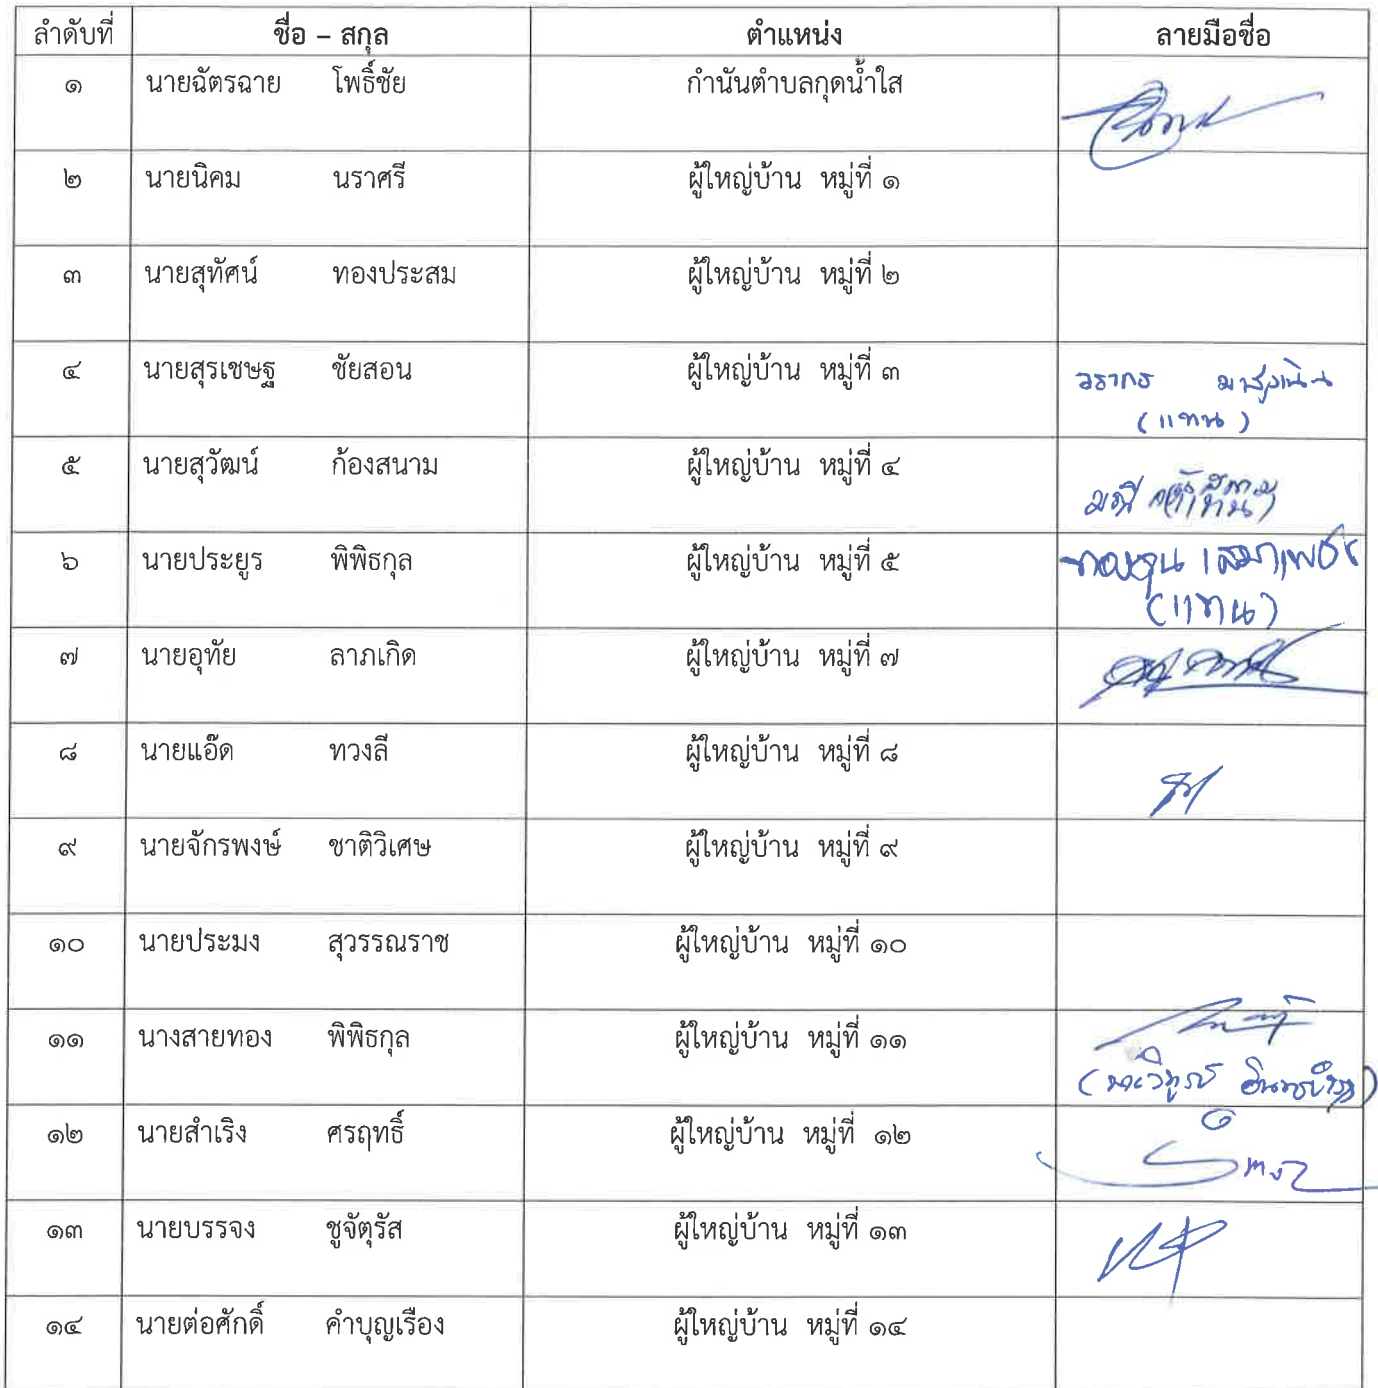 ลำดับที่ ชื่อ – สกุล ตำแหน่ง ลายมือชื่อ
๑ นายฉัตรฉาย โพธิ์ชัย กำนันตำบลกุดน้ำใส
๒ นายนิคม นราศรี ผู้ใหญ่บ้าน หมู่ที่ ๑
๓ นายสุทัศน์ ทองประสม ผู้ใหญ่บ้าน หมู่ที่ ๒
๔ นายสุรเชษฐ ชัยสอน ผู้ใหญ่บ้าน หมู่ที่ ๓ วรากร
(แทน)
๕ นายสุวัฒน์ ก้องสนาม ผู้ใหญ่บ้าน หมู่ที่ ๔
๖ นายประยูร พิพิธกุล ผู้ใหญ่บ้าน หมู่ที่ ๕
(แทน)
๗ นายอุทัย ลาภเกิด ผู้ใหญ่บ้าน หมู่ที่ ๗
๘ นายแอ๊ด ทวงลี ผู้ใหญ่บ้าน หมู่ที่ ๘
๙ นายจักรพงษ์ ชาติวิเศษ ผู้ใหญ่บ้าน หมู่ที่ ๙
๑๐ นายประมง สุวรรณราช ผู้ใหญ่บ้าน หมู่ที่ ๑๐
๑๑ นางสายทอง พิพิธกุล ผู้ใหญ่บ้าน หมู่ที่ ๑๑
๑๒ นายสำเริง ศรฤทธิ์ ผู้ใหญ่บ้าน หมู่ที่ ๑๒
๑๓ นายบรรจง ชูจัตุรัส ผู้ใหญ่บ้าน หมู่ที่ ๑๓
๑๔ นายต่อศักดิ์ คำบุญเรือง ผู้ใหญ่บ้าน หมู่ที่ ๑๔